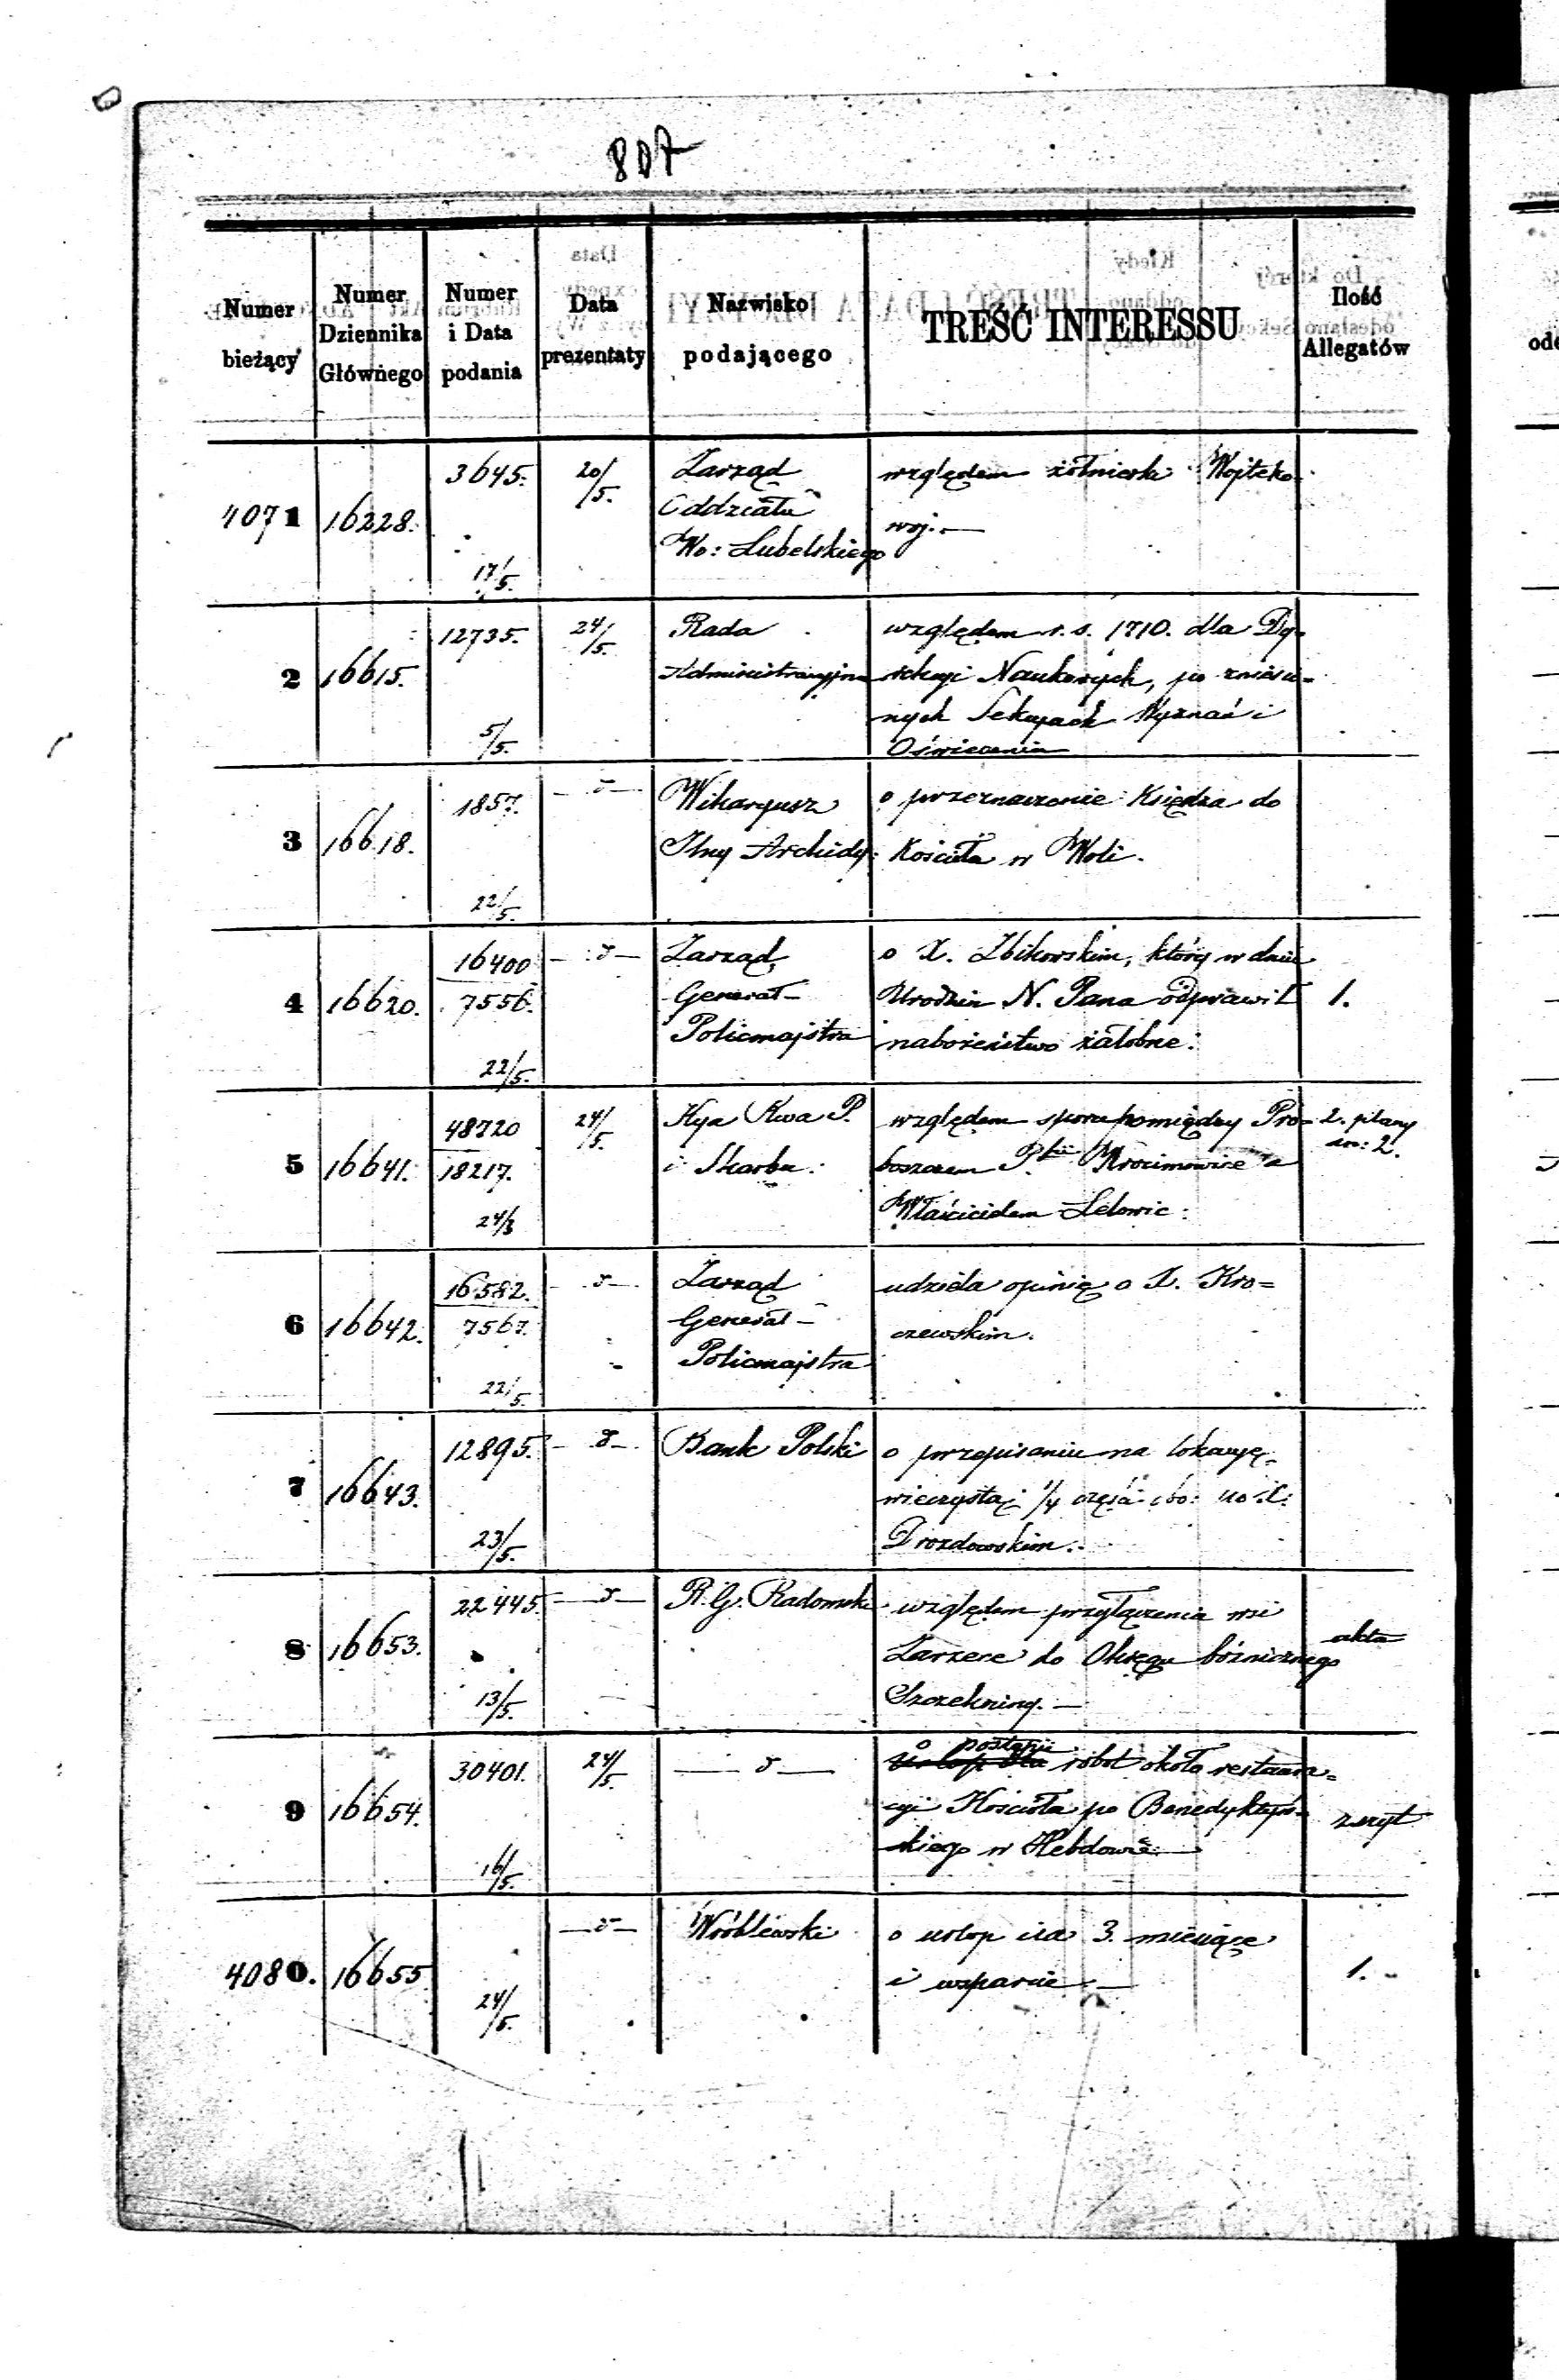 807
Numer bieżący
Numer Dziennika Głównego
Numer i Data podania
Data prezentaty
Nazwisko podającego
TREŚĆ INTERESSU
Ilość Allegatów
4071 16228. 3645. 17/5. 20/5.
Zarząd
Oddziału
Wo: Lubelskiego
względem żołnierki Wojtko-
woj.—
2 16615. 12735. 5/5. 24/5.
Rada
Administracyjna
względem r. s. 1710. dla Dy-
rekcyi Naukowych, po zniesio-
nych Sekcyach Wyznań i
Oświecenia
3 16618. 1857. 22/5. — d —
Wikaryusz
Jlny Archidy:
o przeznaczenie Księdza do
Kościoła w Woli.
4 16620. 16400 7556. 22/5. — d —
Zarząd
Generał-
Policmajstra
o X. Zbikowskim, który w dniu
Urodzin N. Pana odprawił
nabożeństwo żałobne.
1.
5 16641. 48720 18217. 24/3 24/5.
Kya Rwa P.
i Skarbu.
względem sporu pomiędzy Pro=
boszczem a
Właścicielem Lelowic.
2. plany
2.
6 16642. 16582. 7567. 22/5. — d —
Zarząd
Generał-
Policmajstra
udziela opinię o X. Kro=
czewskim.
7 16643. 12895. 23/5. — d —
Bank Polski
o przepisaniu na lokacyę
wieczystą 1/4 część
Drozdowskim.
8 16653. 22445. 13/5. — d —
R. G. Radomski
względem przyłączenia wsi
Zarzecze do Okręgu bóżniczego
Szczekociny.—
akta
9 16654. 30401. 16/5. 24/5. — d —
o postępie
Urlop dla robót około restaura=
cyi Kościoła po Benedyktyń=
skiego w Hebdowie.—
zeszyt
4080. 16655 24/5. — d —
Wróblewski
o urlop na 3. miesiące
i wsparcie.—
1.